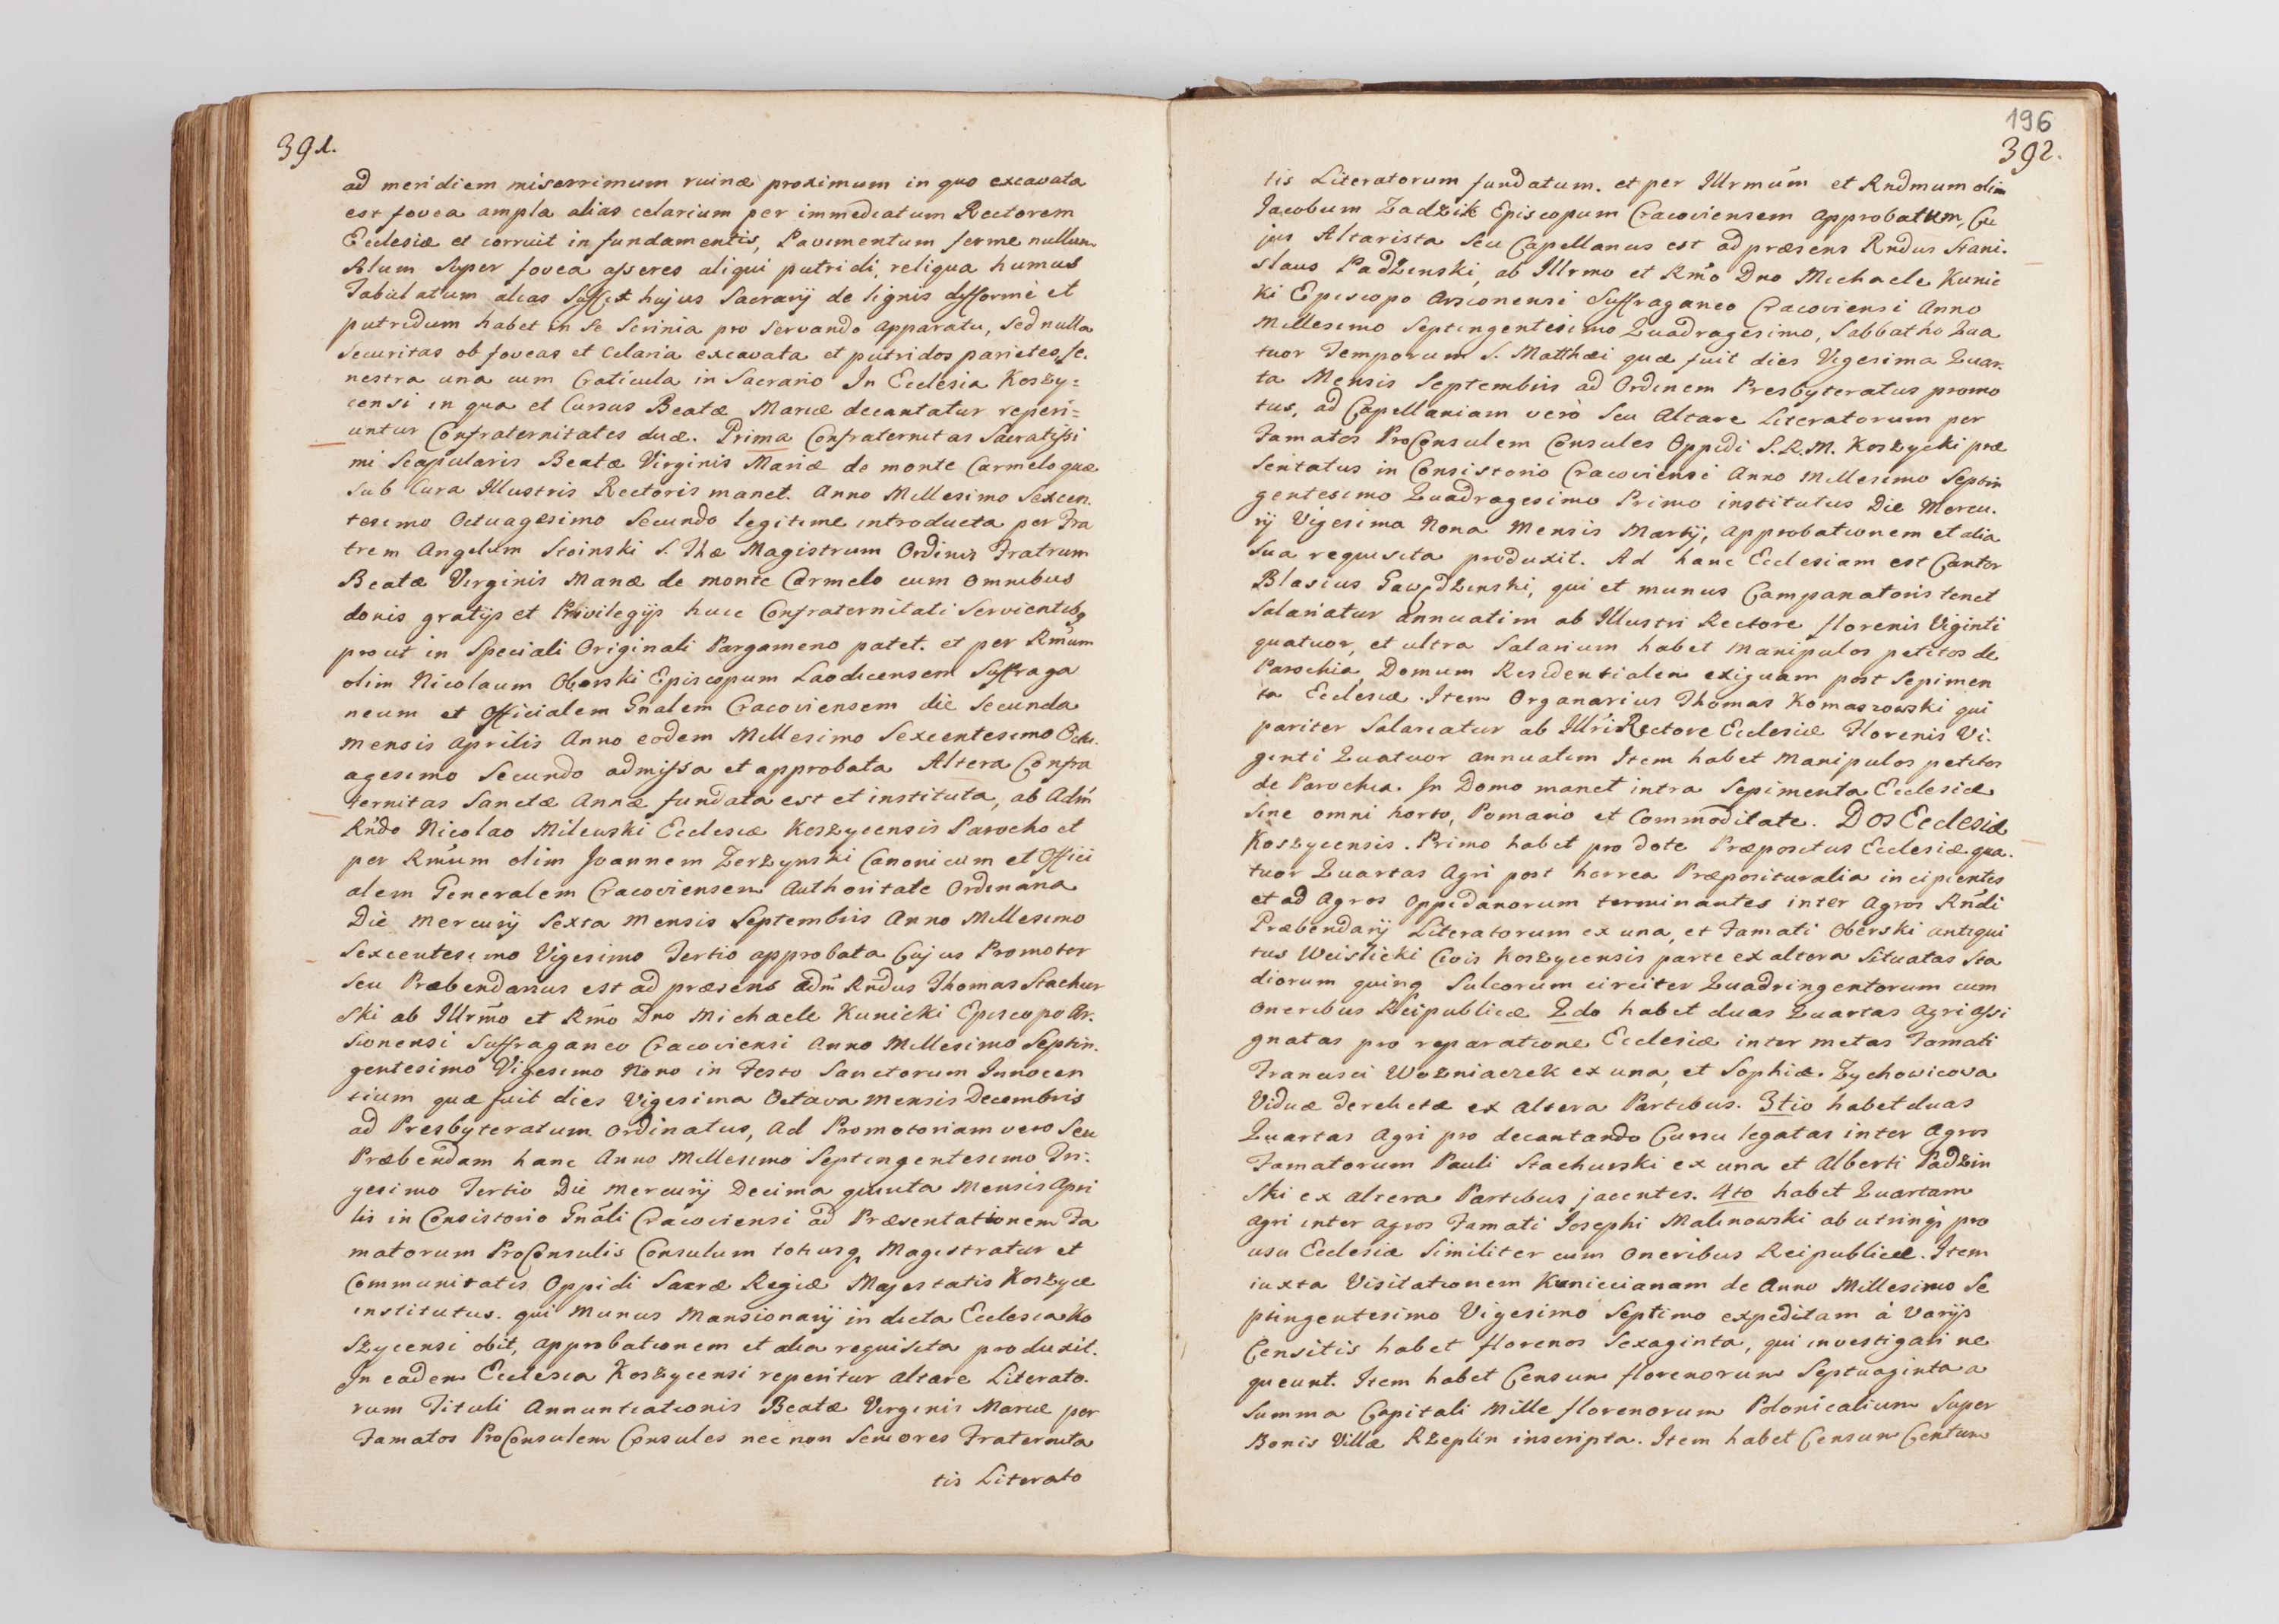 391.
ad meridiem miserrimum ruinæ proximum in quo excavata
est fovea ampla alias celarium per immediatum Rectorem
Ecclesiæ et corruit in fundamentis, Pavimentum ferme nullum
Solum super fovea asseres aliqui putridi, reliqua humus
Tabulatum alias Suffit hujus Sacrarij de lignis difforme et
putridum habet in se Scrinia pro servando apparatu, sed nulla
Securitas ob foveas et Celaria excavata et putridos parietes, fe.
nestra una cum Craticula in Sacrario In Ecclesia Koszy=
censi in qua et Cursus Beatæ Mariæ decantatur reperi=
untur Confraternitates duæ. Prima Confraternitas Sacratissi
mi Scapularis Beatæ Virginis Mariæ de monte Carmelo quæ
sub Cura Illustris Rectoris manet. Anno Millesimo Sexcen.
tesimo Octuagesimo Secundo legitime introducta per Fra
trem Angelum Stoinski S. Thæ Magistrum Ordinis Fratrum
Beatæ Virginis Mariæ de monte Carmelo cum omnibus
donis gratijs et Privilegijs huic Confraternitati Servientibq
prout in Speciali Originali Pargameno patet. et per Rm̃um
olim Nicolaum Oborski Episcopum Laodicensem Suffraga
neum et Officialem Gnalem Cracoviensem die Secunda
mensis Aprilis Anno eodem Millesimo Sexcentesimo Octu.
agesimo Secundo admissa et approbata Altera Confra
ternitas Sanctæ Annæ fundata est et instituta, ab Adm̃
Rndo Nicolao Milewski Ecclesiæ Koszycensis Parocho et
per Rm̃um olim Joannem Zerzynski Canonicum et Offici
alem Generalem Cracoviensem Authoritate Ordinaria
Die Mercurij Sexta Mensis Septembris Anno Millesimo
Sexcentesimo Vigesimo Tertio approbata Cujus Promotor
seu Præbendarius est ad præsens adm̃ Rndus Thomas Stachur
ski ab Illrm̃o et Rm̃o Dno Michaele Kunicki Episcopo Ar.
sionensi Suffraganeo Cracoviensi Anno Millesimo Septin.
gentesimo Vigesimo Nono in Festo Sanctorum Innocen
tium quæ fuit dies Vigesima Octava mensis Decembris
ad Presbyteratum Ordinatus, Ad Promotoriam vero Seu
Præbendam hanc Anno Millesimo Septingentesimo Tri.
gesimo Tertio Die Mercurij Decima quinta Mensis Apri
lis in Consistorio Gnãli Cracoviensi ad Præsentationem Fa
matorum ProConsulis Consulum totiusq Magistratus et
Communitatis Oppidi Sacræ Regiæ Majestatis Koszyce
institutus. qui Munus Mansionarij in dicta Ecclesia Ko
szycensi obit, approbationem et alia requisita produxit.
In eadem Ecclesia Koszycensi reperitur altare Literato.
rum Tituli Annuntiationis Beatæ Virginis Mariæ per
Famatos ProConsulem Consules nec non Seniores Fraternita
tis Literato
196
392.
tis Literatorum fundatum. et per Illrmũm et Rndmum olim
Jacobum Zadzik Episcopum Cracoviensem approbatum, Cu
jus Altarista seu Capellanus est ad præsens Rndus Stani.
slaus Padzenski, ab Illrmo et Rm̃o Dno Michaele Kunic
ki Episcopo Arsionensi Suffraganeo Cracoviensi Anno
Millesimo Septingentesimo Quadragesimo, Sabbatho Qua
tuor Temporum S. Matthæi quæ fuit dies Vigesima Quar.
ta Mensis Septembris ad Ordinem Presbyteratus promo
tus, ad Capellaniam verò seu Altare Literatorum per
Famatos ProConsulem Consules Oppidi S.R.M. Koszycki præ
sentatus in Consistorio Cracoviensi Anno Millesimo Septin
gentesimo Quadragesimo Primo institutus Die Mercu.
rij Vigesima Nona Mensis Martij, approbationem et alia
sua requisita produxit. Ad hanc Ecclesiam est Cantor
Blasius Gawędzinski, qui et munus Campanatoris tenet
Salariatur annuatim ab Illustri Rectore florenis Viginti
quatuor, et ultra Salarium habet Manipulos petitos de
Parochia, Domum Residentialem exiguam post Sepimen
ta Ecclesiæ. Item Organarius Thomas Komaszowski qui
pariter Salariatur ab Illr̃i Rectore Ecclesiæ Florenis Vi.
ginti Quatuor annuatim Item habet Manipulos petitos
de Parochia. In Domo manet intra Sepimenta Ecclesiæ
sine omni horto, Pomario et Commoditate. Dos Ecclesiæ
Koszycensis. Primo habet pro dote Præpositus Ecclesiæ qua.
tuor Quartas Agri post horrea Præposituralia incipientes
et ad Agros Oppidanorum terminantes inter Agros Rñdi
Præbendarij Literatorum ex una, et Famati Oberski antiqui
tus Weislicki Civis Koszycensis parte ex altera Situatas Sta
diorum quinq Sulcorum circiter Quadringentorum cum
Oneribus Reipublicæ 2do habet duas Quartas Agri assi
gnatas pro reparatione Ecclesiæ inter metas Famati
Francisci Wozniaczek ex una, et Sophiæ Zychowicova
Viduæ derelictæ ex altera Partibus. 3tio habet duas
Quartas Agri pro decantando Cursu legatas inter Agros
Famatorum Pauli Stachurski ex una et Alberti Padzin
ski ex altera Partibus jacentes. 4to habet Quartam
agri inter agros Famati Josephi Malinowski ab utrinq pro
usu Ecclesiæ Similiter cum Oneribus Reipublicæ. Item
iuxta Visitationem Kuniccianam de Anno Millesimo Se
ptingentesimo Vigesimo Septimo expeditam à Varijs
Censitis habet florenos Sexaginta, qui investigari ne
queunt. Item habet Censum florenorum Septuaginta a
Summa Capitali Mille florenorum Polonicalium Super
Bonis Villæ Rzeplin inscripta. Item habet Censum Centum